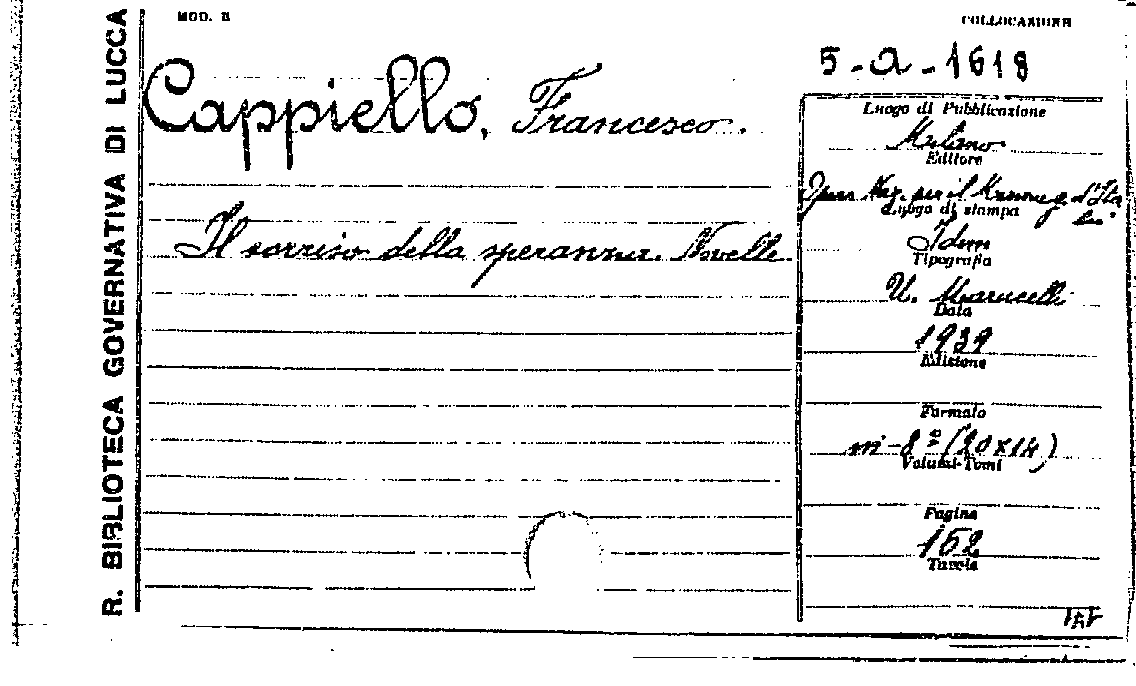 R. BIBLIOTECA GOVERNATIVA DI LUCCA
MOD. B
COLLOCAZIONE
5-a-1618
Cappiello, Francesco.
Il sorriso della speranza. Novelle.
Luogo di Pubblicazione
Milano
Editore
Opera Naz. per il d'Ita
lia
Luogo di stampa
Idem
Tipografia
U. Marucelli
Data
1939
Edizione
Formato
in-8º (20x14)
Volumi-Tomi
Pagine
152
Tavole